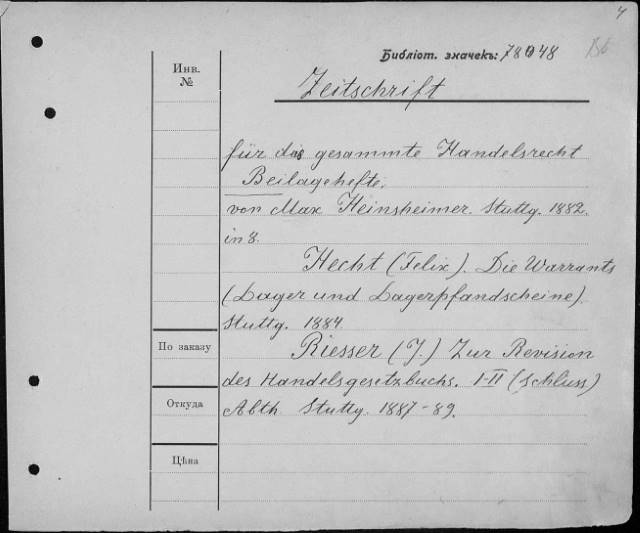 4
Библіот. значекъ: 78048
Инв.
№
Zeitschrift
für das gesammte Handelsrecht
Beilagehefte.
von Max Heinsheimer. Stuttg. 1882.
in 8.
Hecht (Felix). Die Warrants
(Lager und Lagerpfandscheine)
Stuttg. 1884.
По заказу
Riesser (J.) Zur Revision
des Handelsgesetzbuchs. I-II (Schluss)
Откуда
Abth. Stuttg. 1887-89.
Цѣна